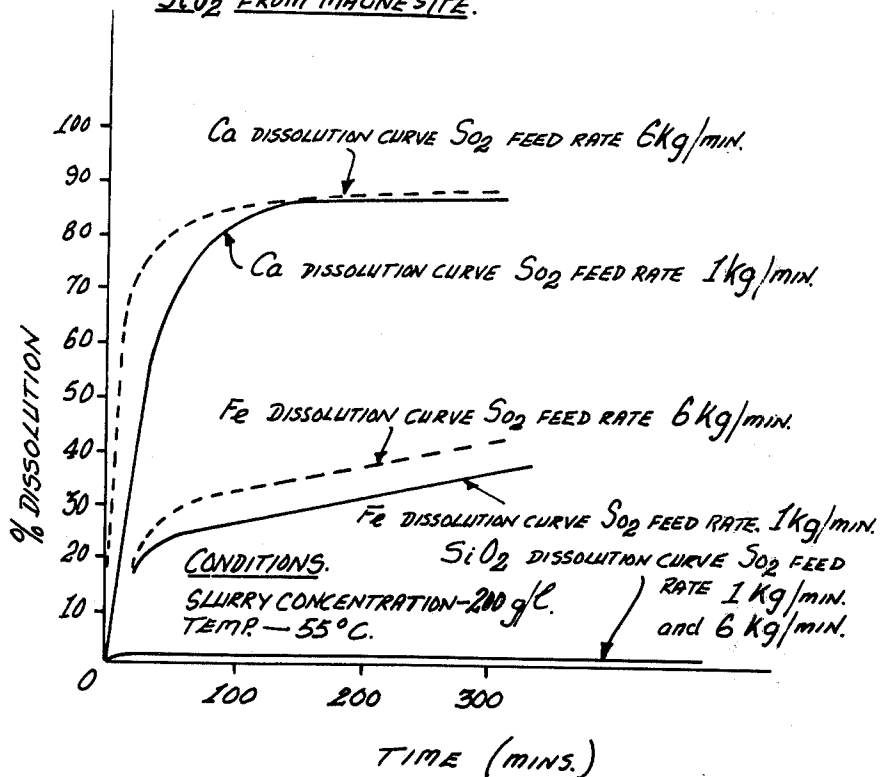 SiO2 FROM MAGNESITE.
100
90
80
70
60
50
40
30
20
10
0
% DISSOLUTION
Ca DISSOLUTION CURVE SO2 FEED RATE 6Kg/MIN.
Ca DISSOLUTION CURVE SO2 FEED RATE 1kg/MIN.
Fe DISSOLUTION CURVE SO2 FEED RATE 6Kg/MIN.
Fe DISSOLUTION CURVE SO2 FEED RATE. 1Kg/MIN.
SiO2 DISSOLUTION CURVE SO2 FEED
RATE 1 Kg/MIN.
and 6 Kg/MIN.
CONDITIONS.
SLURRY CONCENTRATION-200 g/l.
TEMP. — 55°C.
100 200 300
TIME (MINS.)